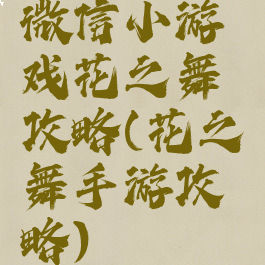 微信小游
戏花之舞
攻略(花之
舞手游攻
略)